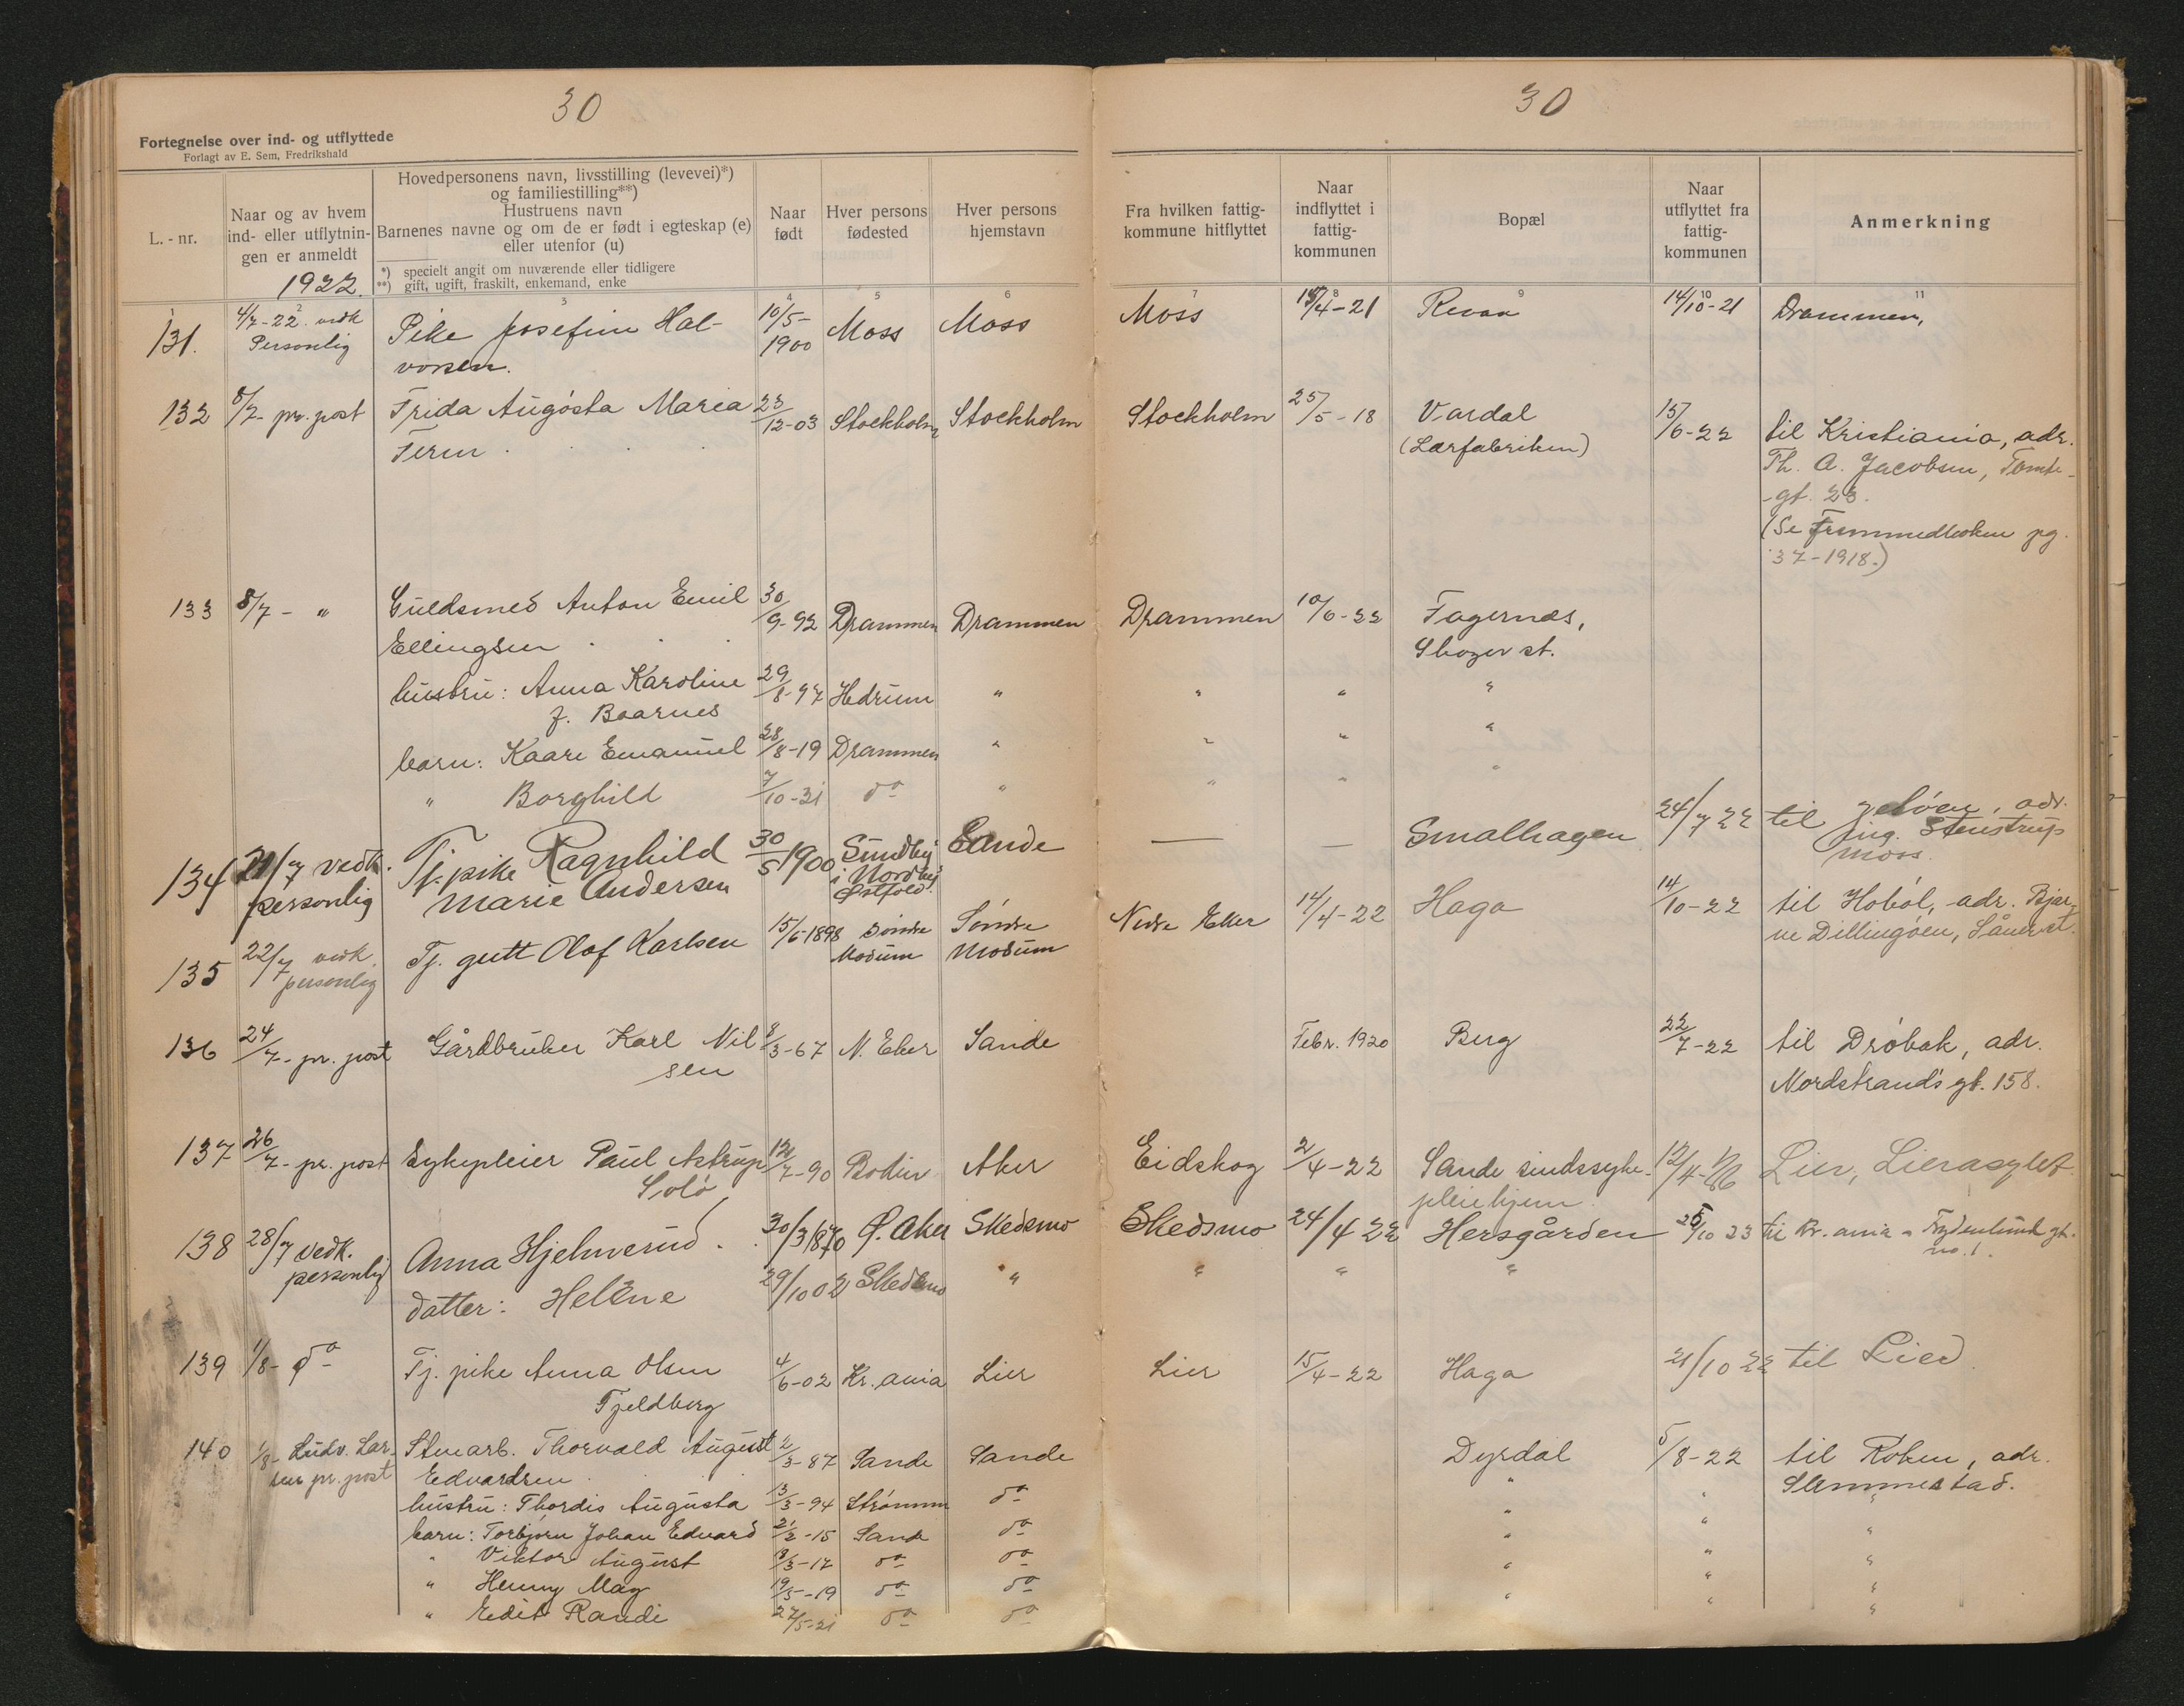 30
30
Fortegnelse over ind- og utflyttede
Forlagt av E. Sem, Fredrikshald
L. - nr.
Naar og av hvem
ind- eller utflytnin-
gen er anmeldt
1922.
Hovedpersonens navn, livsstilling (levevei)*)
og familiestilling**)
Hustruens navn
Barnenes navne og om de er født i egteskap (e)
eller utenfor (u)
*) specielt angit om nuværende eller tidligere
**) gift, ugift, fraskilt, enkemand, enke
Naar
født
Hver persons
fødested
Hver persons
hjemstavn
Fra hvilken fattig-
kommune hitflyttet
Naar
indflyttet i
fattig-
kommunen
Bopæl
Naar
utflyttet fra
fattig-
kommunen
Anmerkning
1 2 3 4 5 6 7 8 9 10 11
131. 4/7-22. vedk Pike Josefine Hal- 10/5- Moss Moss Moss /4-21 Revaa 14/10-21 Drammen,
Personlig vorsen. 1900
132 8/7- pr. post Frida Augósta Maria 23/12-03 Stockholm Stockholm Stockholm 25/5-18 Vardal 15/6-22 til Kristiania, adr.
Ferm (Lærfabriken) Th. A. Jacobsen, Tomte-
-gt. 23.
(Se Fremmedboken pg.
37-1918.)
133 8/7 - " Guldsmed Anton Emil 30/9-92 Drammen Drammen Drammen 10/6-22 Fagernæs,
Ellingsen Skoger st.
hustru: Anna Karoline 29/8-97 Hedrum " " " "
f. Baarnes
barn: Kaare Emanuel 28/8-19 Drammen " " " "
" Borghild 7/10-21 do " " " "
134 21/7 vedk. Tj. pike Ragnhild 30/5 1900 Sundby Sande — — Smalhagen 24/7 22 til Jeløen, adr.
personlig Marie Andersen i Nordby ing. Stenstrup
Østfold. Moss.
135 22/7 vedk. Tj. gutt Olaf Karlsen 15/6-1898 Søndre Søndre Nedre Eker 14/4-22 Haga 14/10-22 til Hobøl, adr. Bjar-
personlig Modum Modum ne Dillingøen, Såner st.
136 24/7- pr. post Gårdbruker Karl Nil- /3-67 N. Eker Sande Febr. 1920 Berg 22/7-22 til Drøbak, adr.
sen Nordstrands gt. 158.
137 26/7- pr. post Sykepleier Paul Astrup 12/7-90 Bodin Aker Eidskog 2/4-22 Sande sindssyke- 12/4- Lier, Lierasylet
Solø pleiehjem
138 28/7 vedk. Anna Hjelmerud. 30/3 1870 Ø. Aker Skedsmo Skedsmo 24/4 22 Hersgården /10 23 til Kr.ania - Frydenlunds gt.
personlig no. 1.
datter: Helene 29/10 02 Skedsmo " " " "
139 1/8- do Tj. pike Anna Olsen 4/6-02 Kr.ania Lier Lier 15/4-22 Haga 21/10 22 til Lier
Fjeldberg
140 1/8- Ludv. Lar- Stenarb. Thorvald August 2/3-87 Sande Sande Dyrdal 5/8-22 til Røken, adr.
sen pr. post Edvardsen Slemmestad.
hustru: Thordis Augusta 13/3-94 Strømm do " " "
barn: Torbjørn Johan Edvard 21/2-15 Sande do " " "
" Viktor August /3-17 do do " " "
" Henny Mag 19/5-19 do do " " "
" Edit Randi 27/5-21 do do " " "